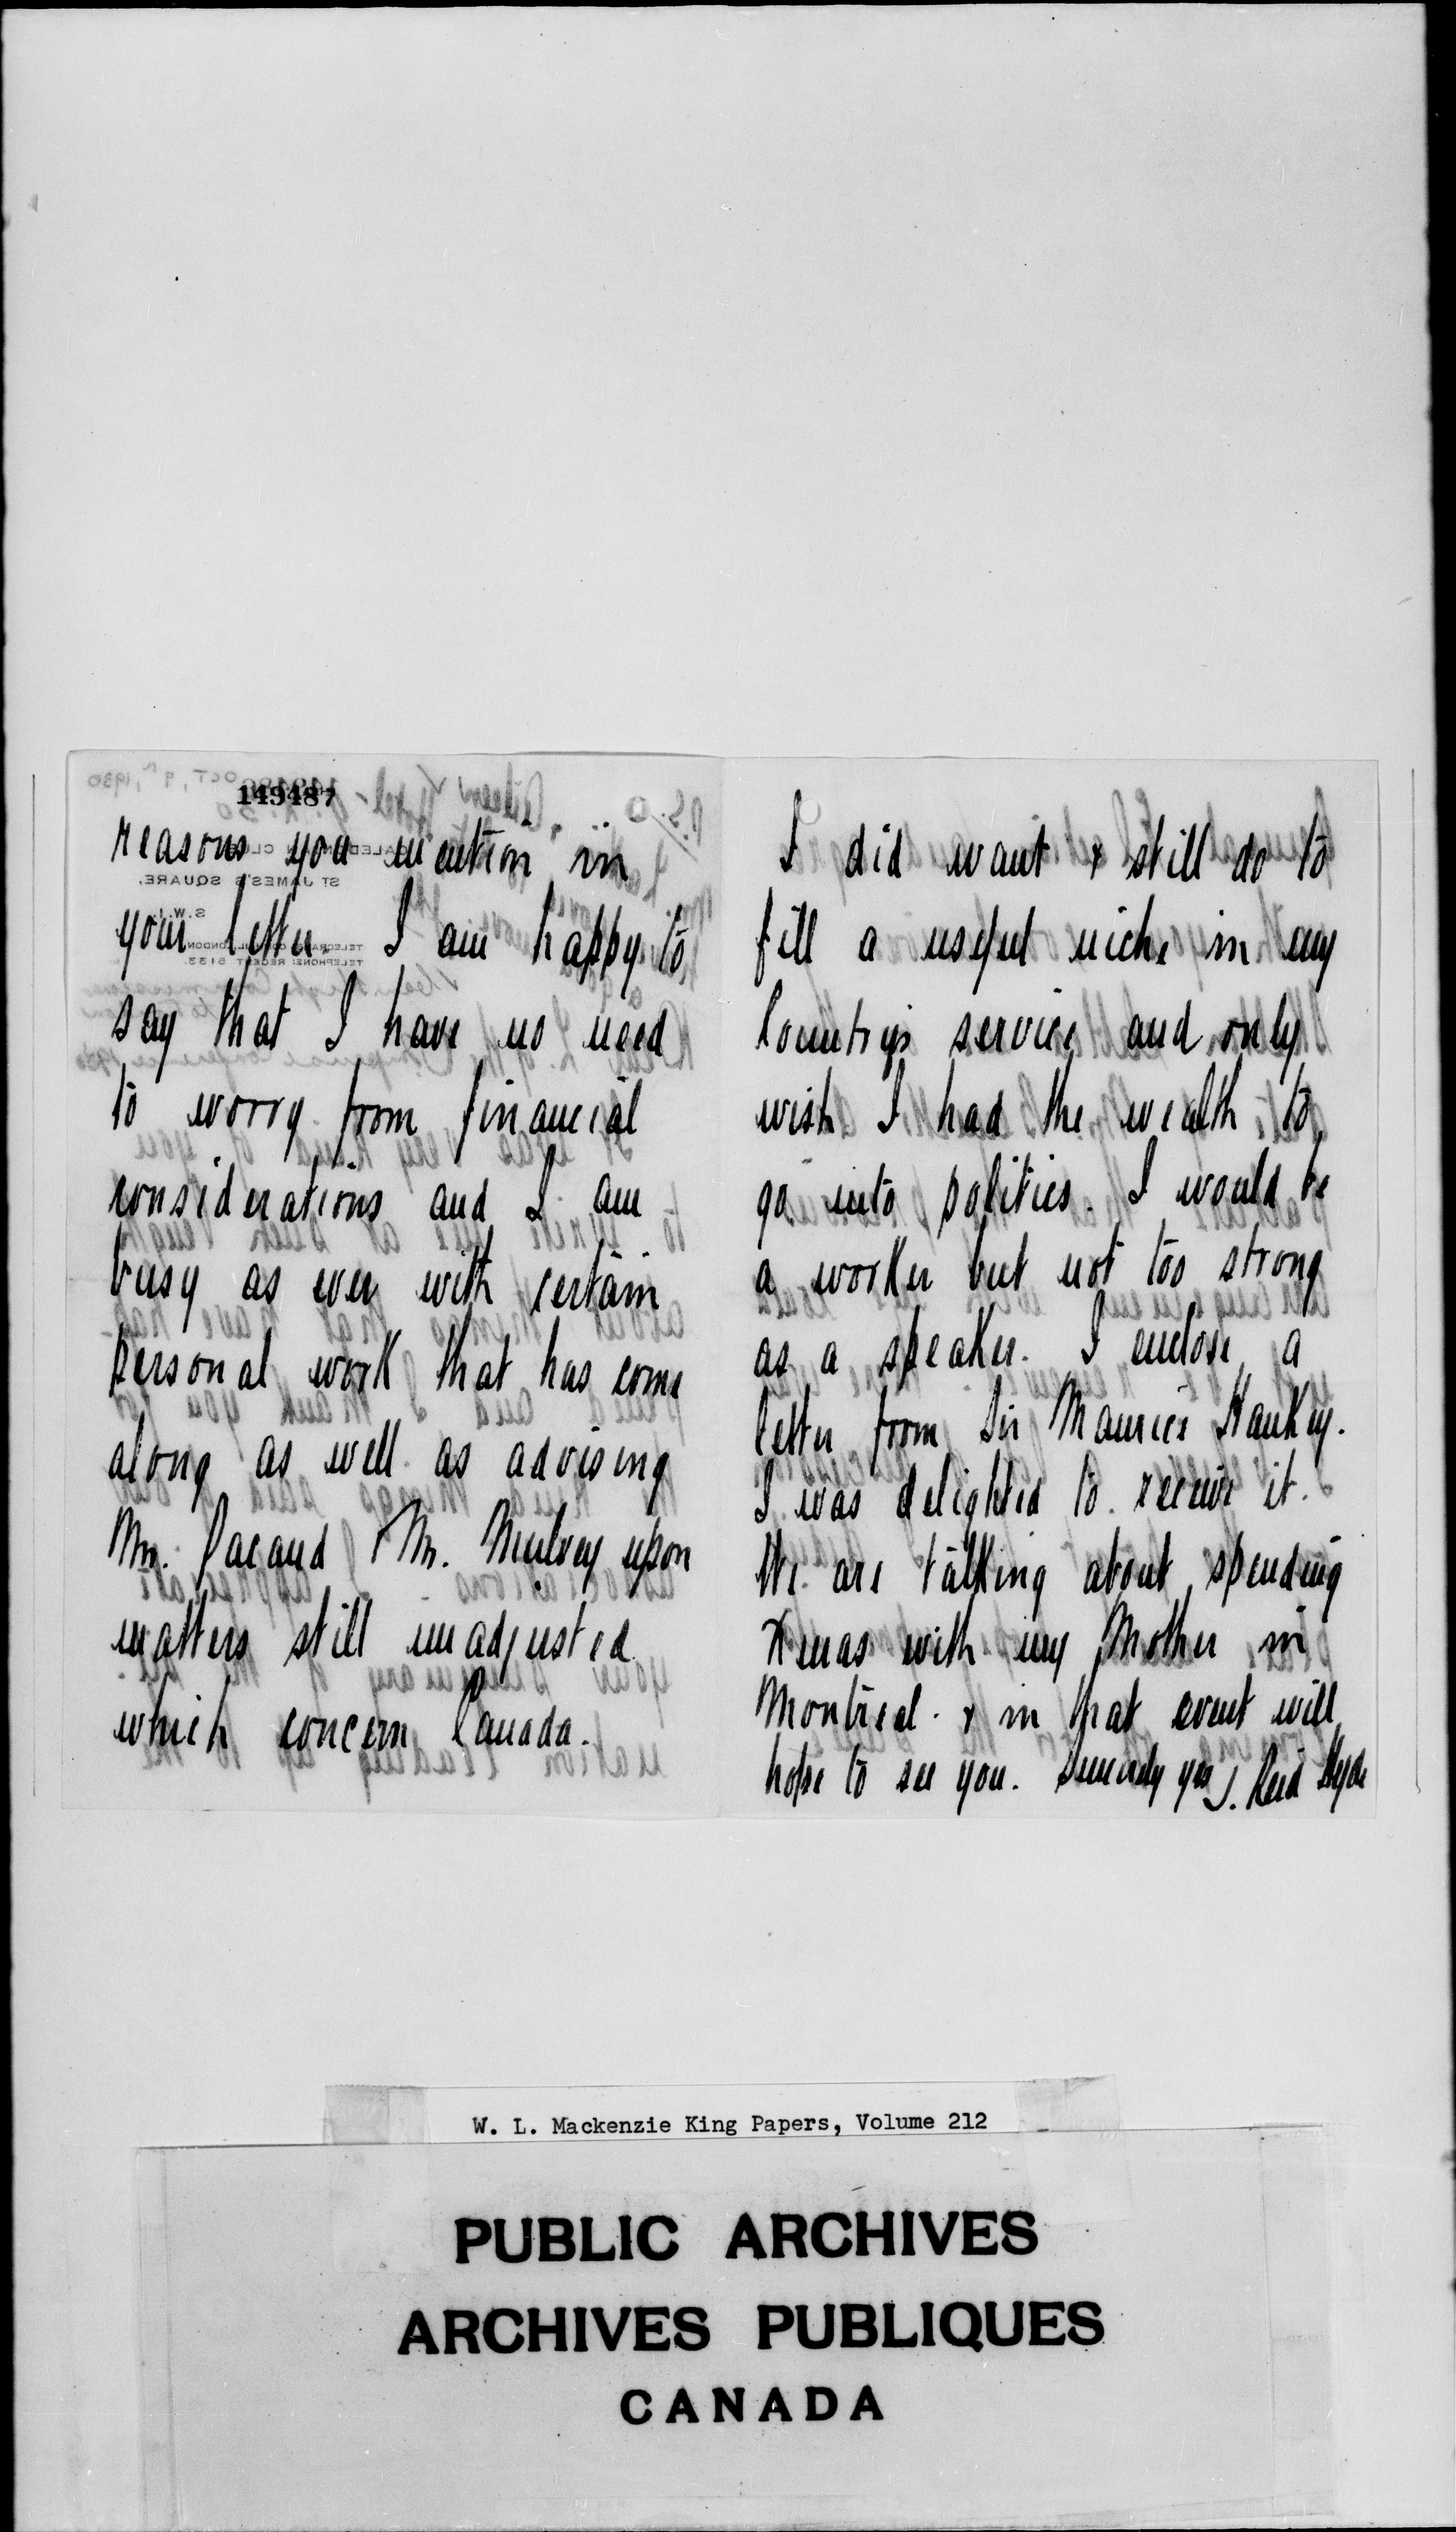 149487
reasons you mention in
your letter. I am happy to
say that I have no need
to worry from financial
considerations and I am
busy as ever with certain
personal work that has come
along as well as advising
Mr. Pacaud & Mr. Mulvey upon
matters still unadjusted
which concern Canada.
I did want & still do to
fill a useful niche in my
Country's service and only
wish I had the wealth to
go into politics. I would be
a worker but not too strong
as a speaker. I enclose a
letter from Sir Maurice Hankey.
I was delighted to receive it.
We are talking about spending
Xmas with my Mother in
Montreal. & in that event will
hope to see you. Sincerely yrs J. Reid Hyde
W. L. Mackenzie King Papers, Volume 212
PUBLIC ARCHIVES
ARCHIVES PUBLIQUES
CANADA